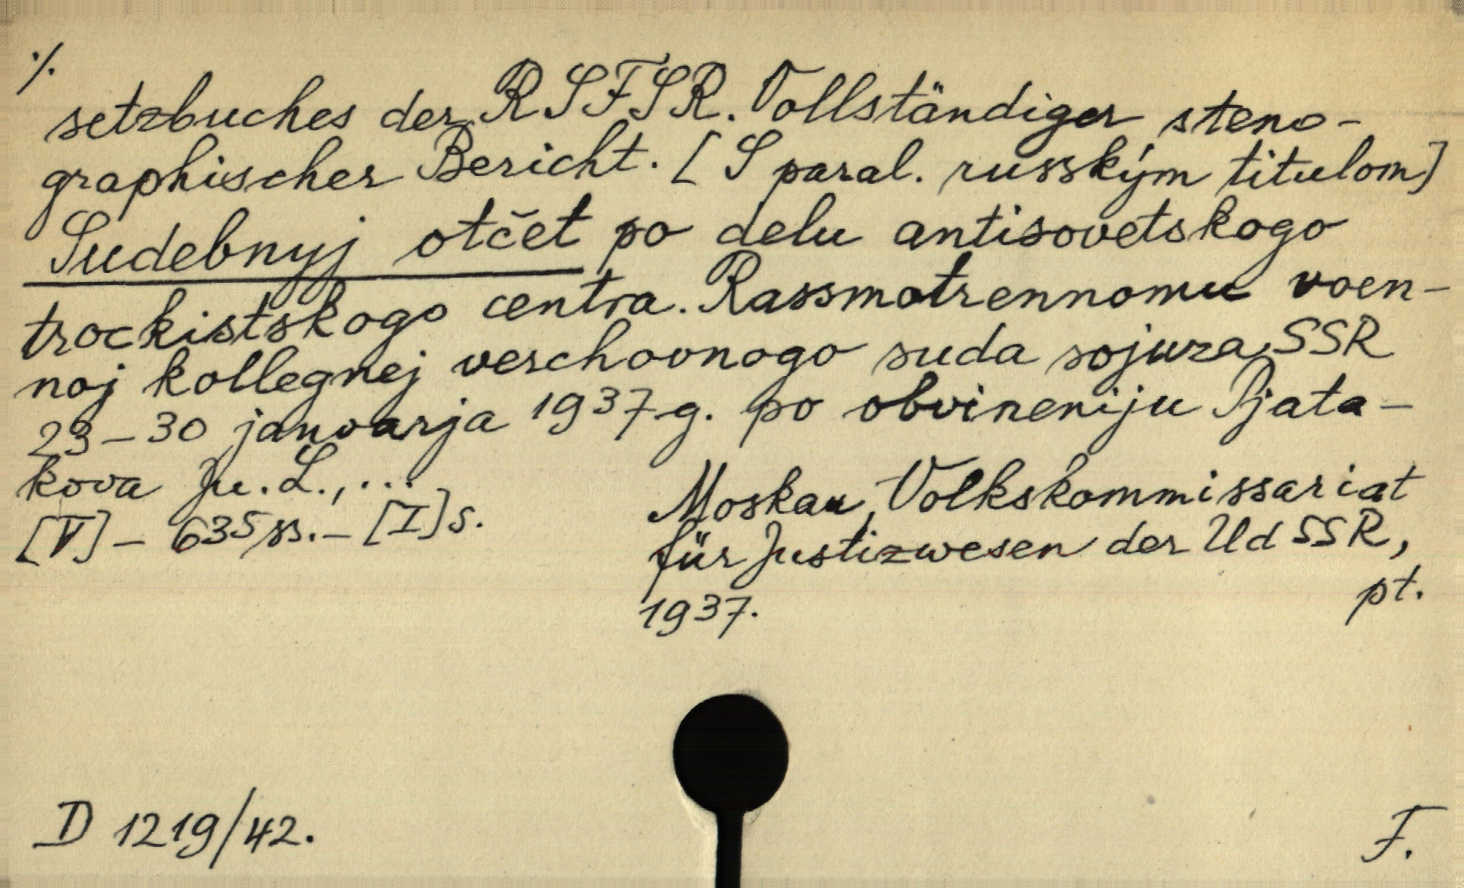 ·/.
setzbuches der RSFSR. Vollständiger steno-
graphischer Bericht. [S paral. rusským titulom]
Sudebnyj otčet po delu antisovetskogo
trockistskogo centra. Rassmotrennomu voen-
noj kollegnej verchovnogo suda sojuza SSR
23-30 janvarja 1937 g. po obvineniju Pjata-
kova Ju. L., ...
[V] - 635 ss. - [I] s.
Moskau, Volkskommissariat
für Justizwesen der UdSSR,
1937.
pt.
D 1219/42.
F.